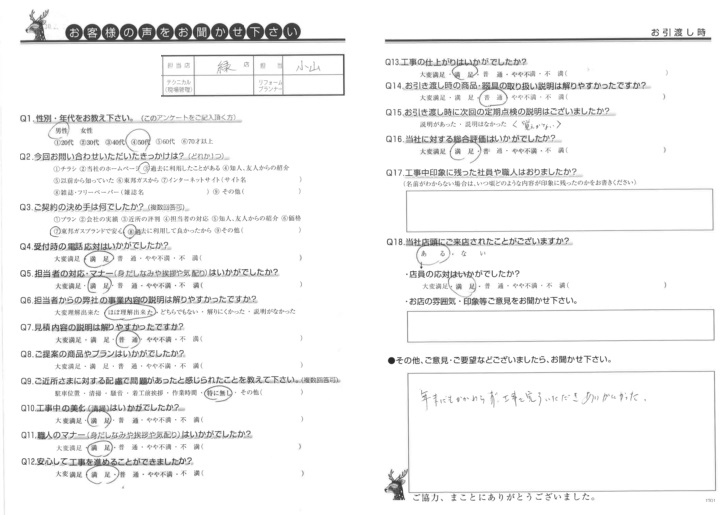 お客様の声をお聞かせ下さい
担当店 緑 店 担当 小山
テクニカル(現場管理) リフォームプランナー
Q1.性別・年代をお教え下さい。(このアンケートをご記入頂く方)
男性 女性
①20代 ②30代 ③40代 ④50代 ⑤60代 ⑥70才以上
Q2.今回お問い合わせいただいたきっかけは?(どれか1つ)
①チラシ ②当社のホームページ ③過去に利用したことがある ④知人、友人からの紹介
⑤以前から知っていた ⑥東邦ガスから ⑦インターネットサイト(サイト名
⑧雑誌・フリーペーパー(雑誌名 ) ⑨その他( )
Q3.ご契約の決め手は何でしたか?(複数回答可)
①プラン ②会社の実績 ③近所の評判 ④担当者の対応 ⑤知人、友人からの紹介 ⑥価格
⑦東邦ガスブランドで安心 ⑧過去に利用して良かったから ⑨その他( )
Q4.受付時の電話応対はいかがでしたか?
大変満足・満足・普通・やや不満・不満( )
Q5.担当者の対応・マナー(身だしなみや挨拶や気配り)はいかがでしたか?
大変満足・満足・普通・やや不満・不満( )
Q6.担当者からの弊社の事業内容の説明は解りやすかったですか?
大変理解出来た・ほぼ理解出来た・どちらでもない・解りにくかった・説明がなかった
Q7.見積内容の説明は解りやすかったですか?
大変満足・満足・普通・やや不満・不満( )
Q8.ご提案の商品やプランはいかがでしたか?
大変満足・満足・普通・やや不満・不満( )
Q9.ご近所さまに対する配慮で問題があったと感じられたことを教えて下さい。(複数回答可)
駐車位置・清掃・騒音・着工前挨拶・作業時間・特に無し・その他( )
Q10.工事中の美化(清掃)はいかがでしたか?
大変満足・満足・普通・やや不満・不満( )
Q11.職人のマナー(身だしなみや挨拶や気配り)はいかがでしたか?
大変満足・満足・普通・やや不満・不満( )
Q12.安心して工事を進めることができましたか?
大変満足・満足・普通・やや不満・不満( )
お引渡し時
Q13.工事の仕上がりはいかがでしたか?
大変満足・満足・普通・やや不満・不満( )
Q14.お引き渡し時の商品・器具の取り扱い説明は解りやすかったですか?
大変満足・満足・普通・やや不満・不満( )
Q15.お引き渡し時に次回の定期点検の説明はございましたか?
説明があった・説明はなかった
Q16.当社に対する総合評価はいかがでしたか?
大変満足・満足・普通・やや不満・不満( )
Q17.工事中印象に残った社員や職人はおりましたか?
(名前がわからない場合は、いつ頃どのような内容が印象に残ったのかをお書きください)
Q18.当社店頭にご来店されたことがございますか?
ある・ない
・店員の応対はいかがでしたか?
大変満足・満足・普通・やや不満・不満( )
・お店の雰囲気・印象等ご意見をお聞かせ下さい。
●その他、ご意見・ご要望などございましたら、お聞かせ下さい。
年末にもかかわらず、工事を完了いただき ありがとうございました。
ご協力、まことにありがとうございました。